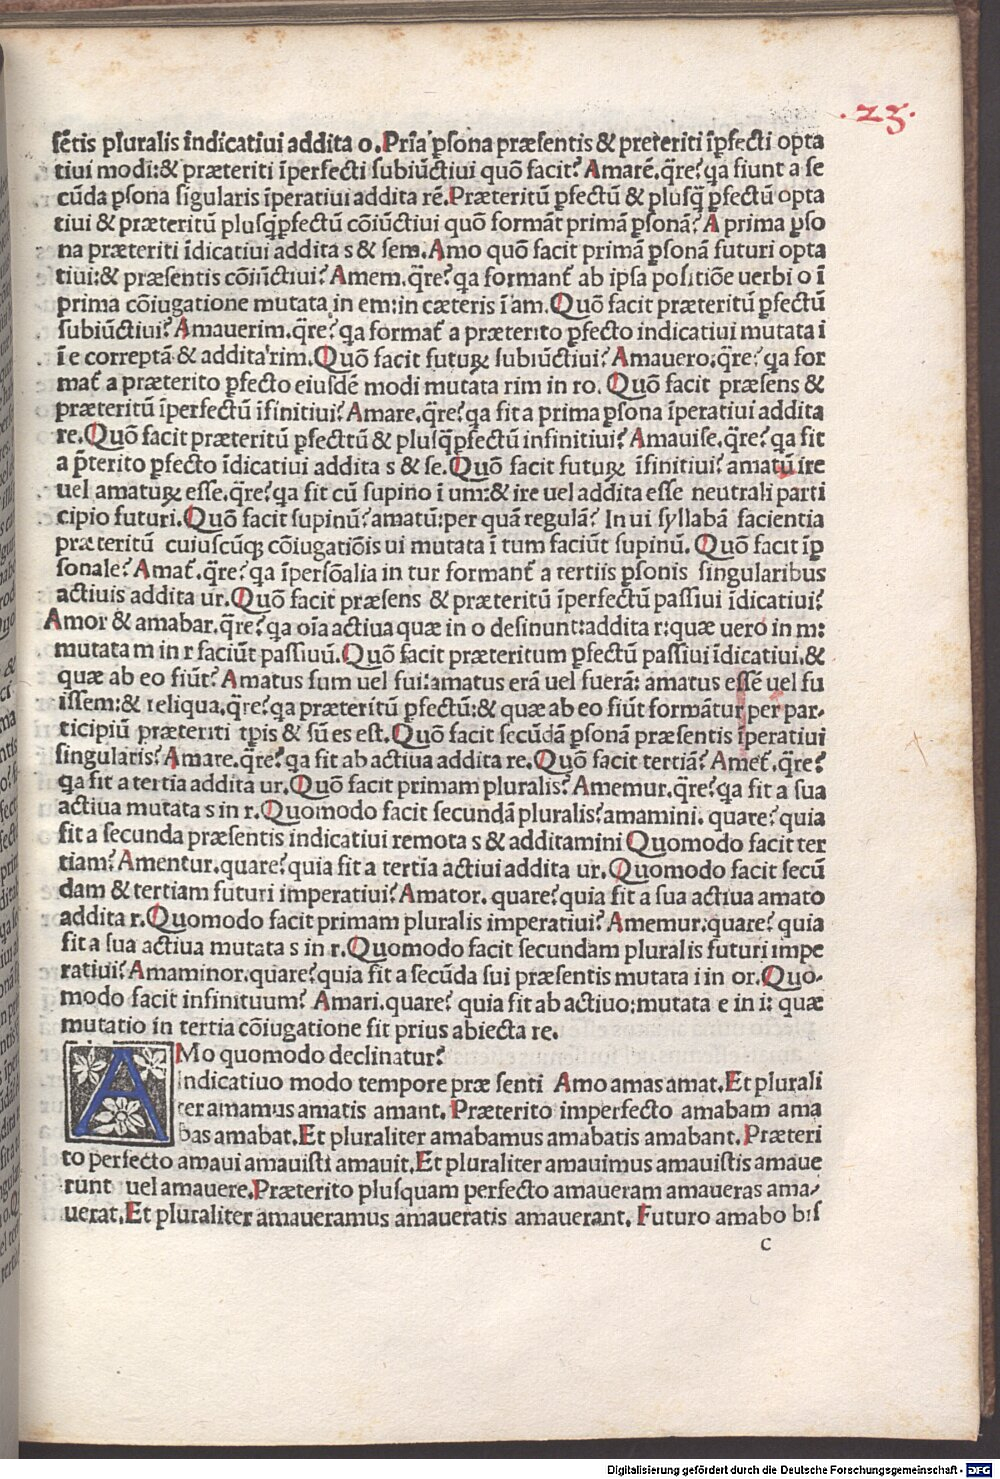 .25.
ſẽtis pluralis indicatiui addita o. Pria ꝑſona præſentis & preteriti ĩꝑfecti opta
tiui modi:& præteriti ĩperfecti ſubiũctiui quõ facit? Amarẽ.q̃re?qa fiunt a ſe
cũda ꝑſona ſigularis ĩperatiui addita rẽ. Præteritũ ꝑfectũ & pluſq̃ ꝑfectũ opta
tiui & præteritũ pluſq̃ꝑfectũ cõiũctiui quõ formãt primã ꝑſonã? A prima ꝑſo
na præteriti ĩdicatiui addita s & ſem. Amo quõ facit primã ꝑſonã futuri opta
tiui:& præſentis cõiũctiui? Amem.q̃re?qa formant̃ ab ipſa poſitiõe uerbi o ĩ
prima cõiugatione mutata in em:in cæteris ĩ am. Quõ facit præteritũ ꝑfectũ
ſubiũctiui? Amauerim.q̃re?qa format̃ a præterito ꝑfecto indicatiui mutata i
ĩ e correptã & addita rim. Quõ facit futuꝝ ſubiũctiui? Amauero.q̃re?qa for
mat̃ a præterito ꝑfecto eiuſdẽ modi mutata rim in ro. Quõ facit præſens &
præteritũ ĩperfectũ ĩfinitiui? Amare.q̃re?qa fit a prima ꝑſona ĩperatiui addita
re. Quõ facit præteritũ ꝑfectũ & pluſq̃ꝑfectũ infinitiui? Amauiſe.q̃re?qa fit
a p̃terito ꝑfecto ĩdicatiui addita s & ſe. Quõ facit futuꝝ ĩfinitiui? amatũ ire
uel amatuꝝ eſſe.q̃re?qa fit cũ ſupino ĩ um:& ire uel addita eſſe neutrali parti
cipio futuri. Quõ facit ſupinũ? amatũ:per quã regulã? In ui ſyllabã facientia
præteritũ cuiuſcũqꝫ cõiugatiõis ui mutata ĩ tum faciũt ſupinũ. Quõ facit ĩꝑ
ſonale? Amat̃.q̃re?qa ĩperſõalia in tur formant̃ a tertiis ꝑſonis ſingularibus
actiuis addita ur. Quõ facit præſens & præteritũ ĩperfectũ paſſiui ĩdicatiui?
Amor & amabar.q̃re?qa oĩa actiua quæ in o deſinunt:addita r:quæ uero in m:
mutata m in r faciũt paſſiuũ. Quõ facit præteritum ꝑfectũ paſſiui ĩdicatiui.&
quæ ab eo fiũt? Amatus ſum uel fui:amatus erã uel fuerã: amatus eſſẽ uel fu
iſſem:& reliqua.q̃re?qa præteritũ ꝑfectũ:& quæ ab eo fiũt formãtur per par-
ticipiũ præteriti tꝑis & ſũ es eſt. Quõ facit ſecũdã ꝑſonã præſentis ĩperatiui
ſingularis? Amare.q̃re?qa fit ab actiua addita re. Quõ facit tertiã? Amet̃.q̃re?
qa fit a tertia addita ur. Quõ facit primam pluralis? Amemur.q̃re?qa fit a ſua
actiua mutata s in r. Quomodo facit ſecundã pluralis? amamini. quare?quia
fit a ſecunda præſentis indicatiui remota s & additamini Quomodo facit ter
tiam? Amentur.quare?quia fit a tertia actiui addita ur. Quomodo facit ſecũ
dam & tertiam futuri imperatiui? Amator. quare?quia fit a ſua actiua amato
addita r. Quomodo facit primam pluralis imperatiui? Amemur.quare? quia
fit a ſua actiua mutata s in r. Quomodo facit ſecundam pluralis futuri impe
ratiui? Amaminor.quare?quia fit a ſecũda ſui præſentis mutata i in or. Quo-
modo facit infinituum? Amari.quare? quia fit ab actiuo:mutata e in i: quæ
mutatio in tertia cõiugatione fit prius abiecta re.
AMo quomodo declinatur?
indicatiuo modo tempore præ ſenti Amo amas amat. Et plurali
ter amamus amatis amant. Præterito imperfecto amabam ama
bas amabat. Et pluraliter amabamus amabatis amabant. Præteri
to perfecto amaui amauiſti amauit. Et pluraliter amauimus amauiſtis amaue
runt uel amauere. Præterito pluſquam perfecto amaueram amaueras ama-
uerat. Et pluraliter amaueramus amaueratis amauerant. Futuro amabo biſ
c
Digitalisierung gefördert durch die Deutsche Forschungsgemeinschaft - DFG